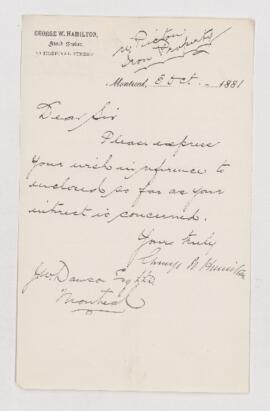 GEORGE W. HAMILTON,
Stock Broker,
HOSPITAL STREET
re Pictou
Iron Property
Montreal, 8 Oct 1881
Dear Sir
Please express
your wish in reference to
enclosed so far as your
interest is concerned.
Yours truly
George W Hamilton
J W Dawson
Montreal